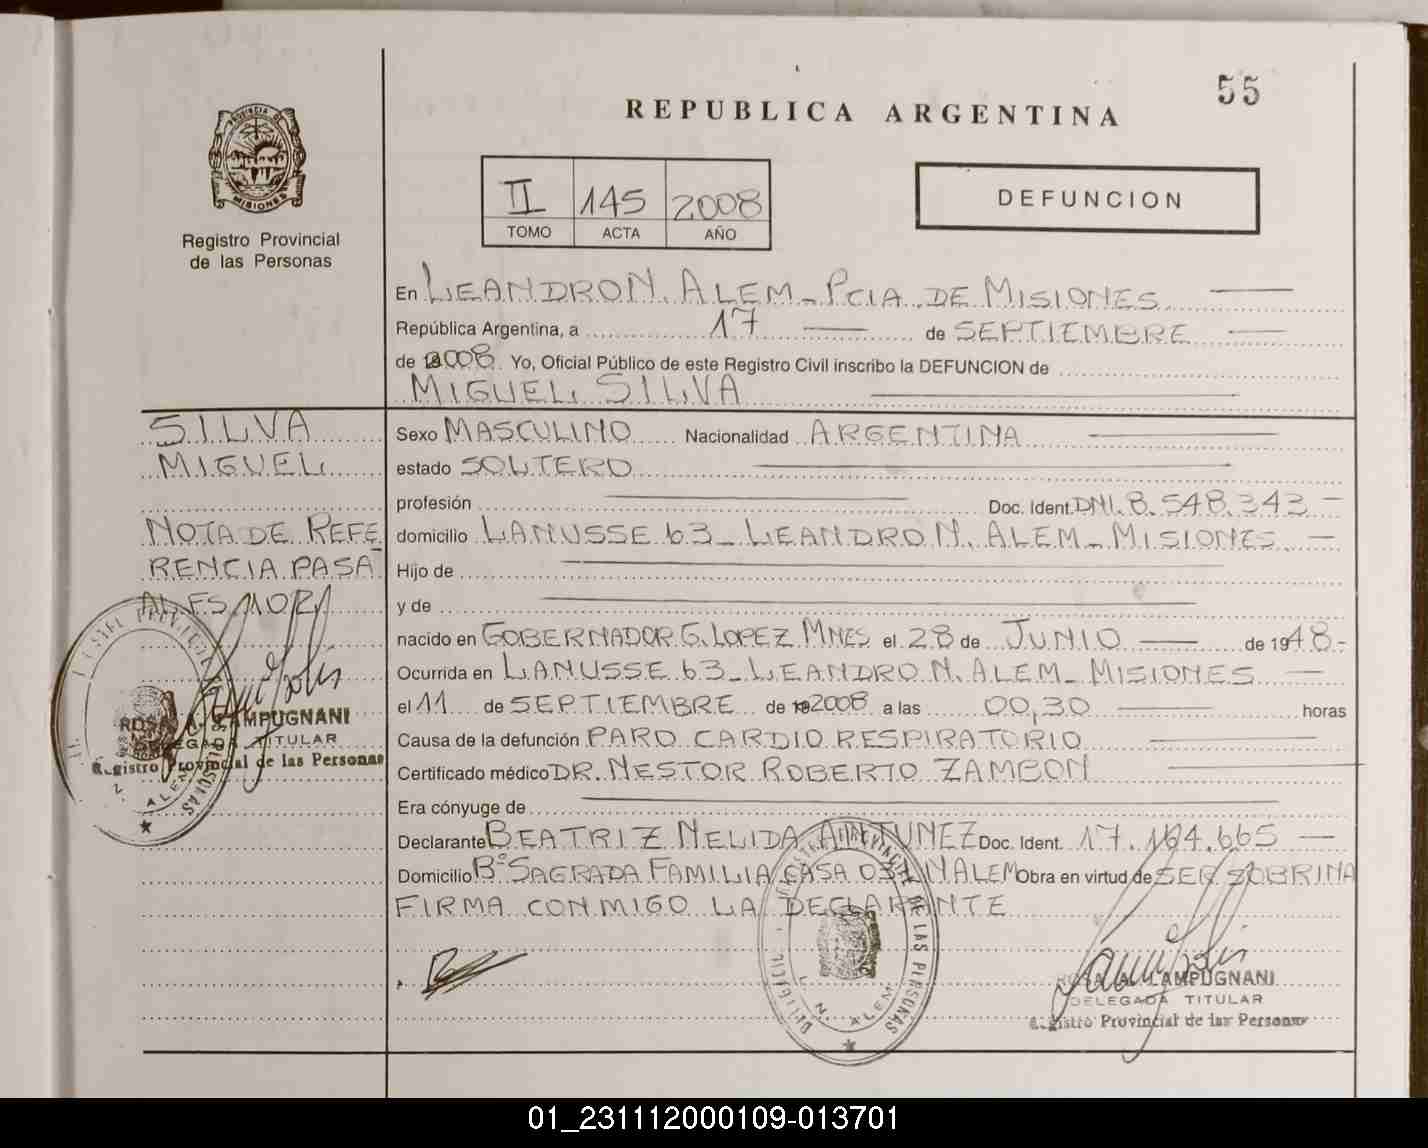 55
REPUBLICA ARGENTINA
PROVINCIA DE MISIONES
II 145 2008
TOMO ACTA AÑO
DEFUNCION
Registro Provincial
de las Personas
En LEANDRO N. ALEM - PCIA. DE MISIONES
República Argentina, a 17 de SEPTIEMBRE
de 2008 Yo, Oficial Público de este Registro Civil inscribo la DEFUNCION de
MIGUEL SILVA
SILVA
MIGUEL
NOTA DE REFE
RENCIA PASA
AL FS
Sexo MASCULINO Nacionalidad ARGENTINA
estado SOLTERO
profesión Doc. Ident. DNI. 8.548.343 -
domicilio LANUSSE 63 - LEANDRO N. ALEM - MISIONES
Hijo de
y de
nacido en GOBERNADOR G. LOPEZ MNES el 28 de JUNIO de 1948-
Ocurrida en LANUSSE 63 - LEANDRO N. ALEM - MISIONES
el 11 de SEPTIEMBRE de 2008 a las 00,30 horas
Causa de la defunción PARO CARDIO RESPIRATORIO
Certificado médico DR. NESTOR ROBERTO ZAMBON
Era cónyuge de
Declarante BEATRIZ NELIDA ANTUNEZ Doc. Ident. 17.164.665
Domicilio Bº SAGRADA FAMILIA CASA 03 LN ALEM Obra en virtud de SER SOBRINA
FIRMA CONMIGO LA DECLARANTE
ROSA A. LAMPUGNANI
DELEGADA TITULAR
Registro Provincial de las Personas
ROSA A. LAMPUGNANI
DELEGADA TITULAR
Registro Provincial de las Personas
01_231112000109-013701